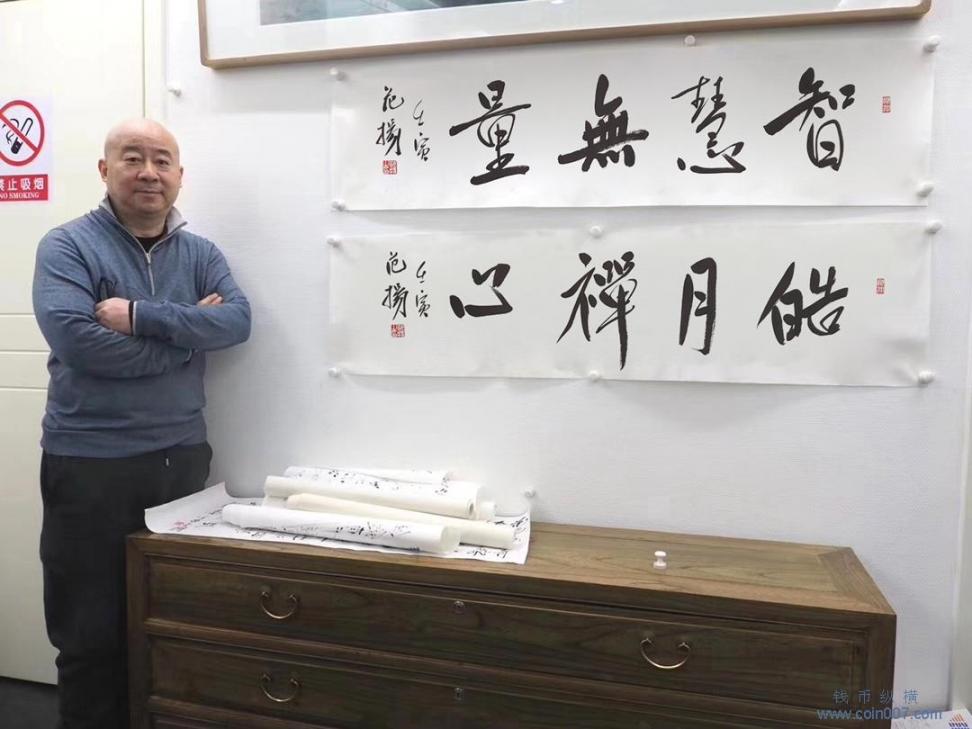 智慧無量
壬寅
范扬
皓月禪心
壬寅
范扬
禁止吸烟
NO SMOKING
钱币纵横
www.coin007.com